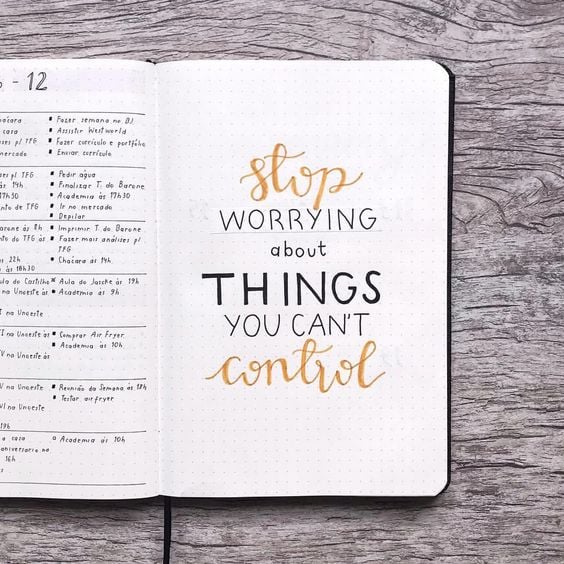 - 12
casa
ses p/ TFG
mercado
▪ Fazer semana no BJ
▪ Assistir Westworld
▪ Fazer currículo e portfólio
▪ Enviar currículo
ses p/ TFG
às 14h
17h30
nto de TFG
▪ Pedir água
▪ Finalizar T. do Barone
▪ Academia às 17h30
▪ Ir no mercado
▪ Depilar
arone às 8h
nto do TFG às
22h
às 18h30
▪ Imprimir T. do Barone
▪ Fazer mais análises p/
TFG
▪ Chácara às 14h
ula do Castilho
na Unoeste às
na Unoeste
× Aula do Josske às 19h
▪ Academia às 9h
TI na Unoeste às
TV na Unoeste às
▪ Comprar Air Fryer
▪ Academia às 10h
VI na Unoeste
VI na Unoeste
19h
▪ Reunião da Semana às 18h
▪ Testar air fryer
a casa
aniversário na
16h
o Academia às 10h
stop
WORRYING
about
THINGS
YOU CAN'T
control